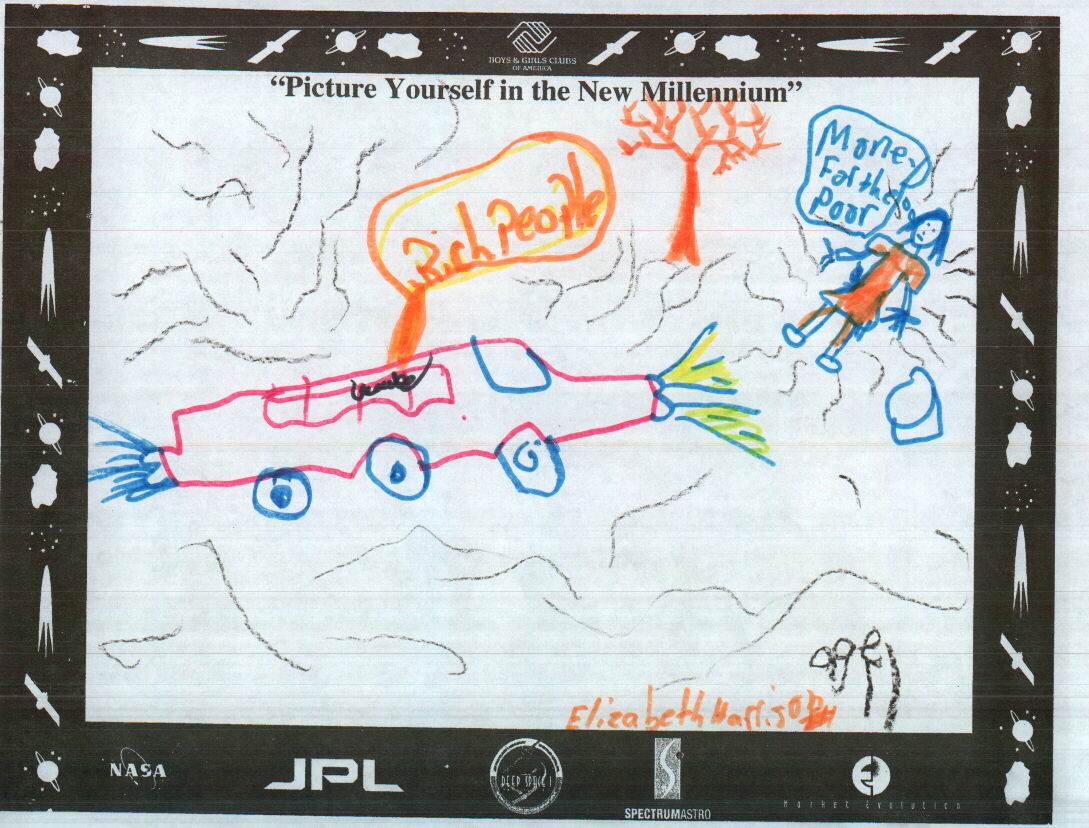 BOYS & GIRLS CLUBS
OF AMERICA
"Picture Yourself in the New Millennium"
Rich People
Money
For the
Poor
age
Elizabeth Harrison
NASA
JPL
DEEP SPACE 1
SPECTRUMASTRO
Market Evolution